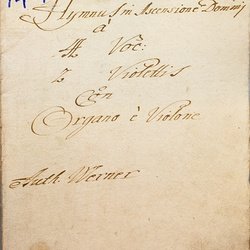 Hymnus in Ascensione Domini
à
4 Voc:
2 Violettis
Con
Organo è Violone
Auth. Werner